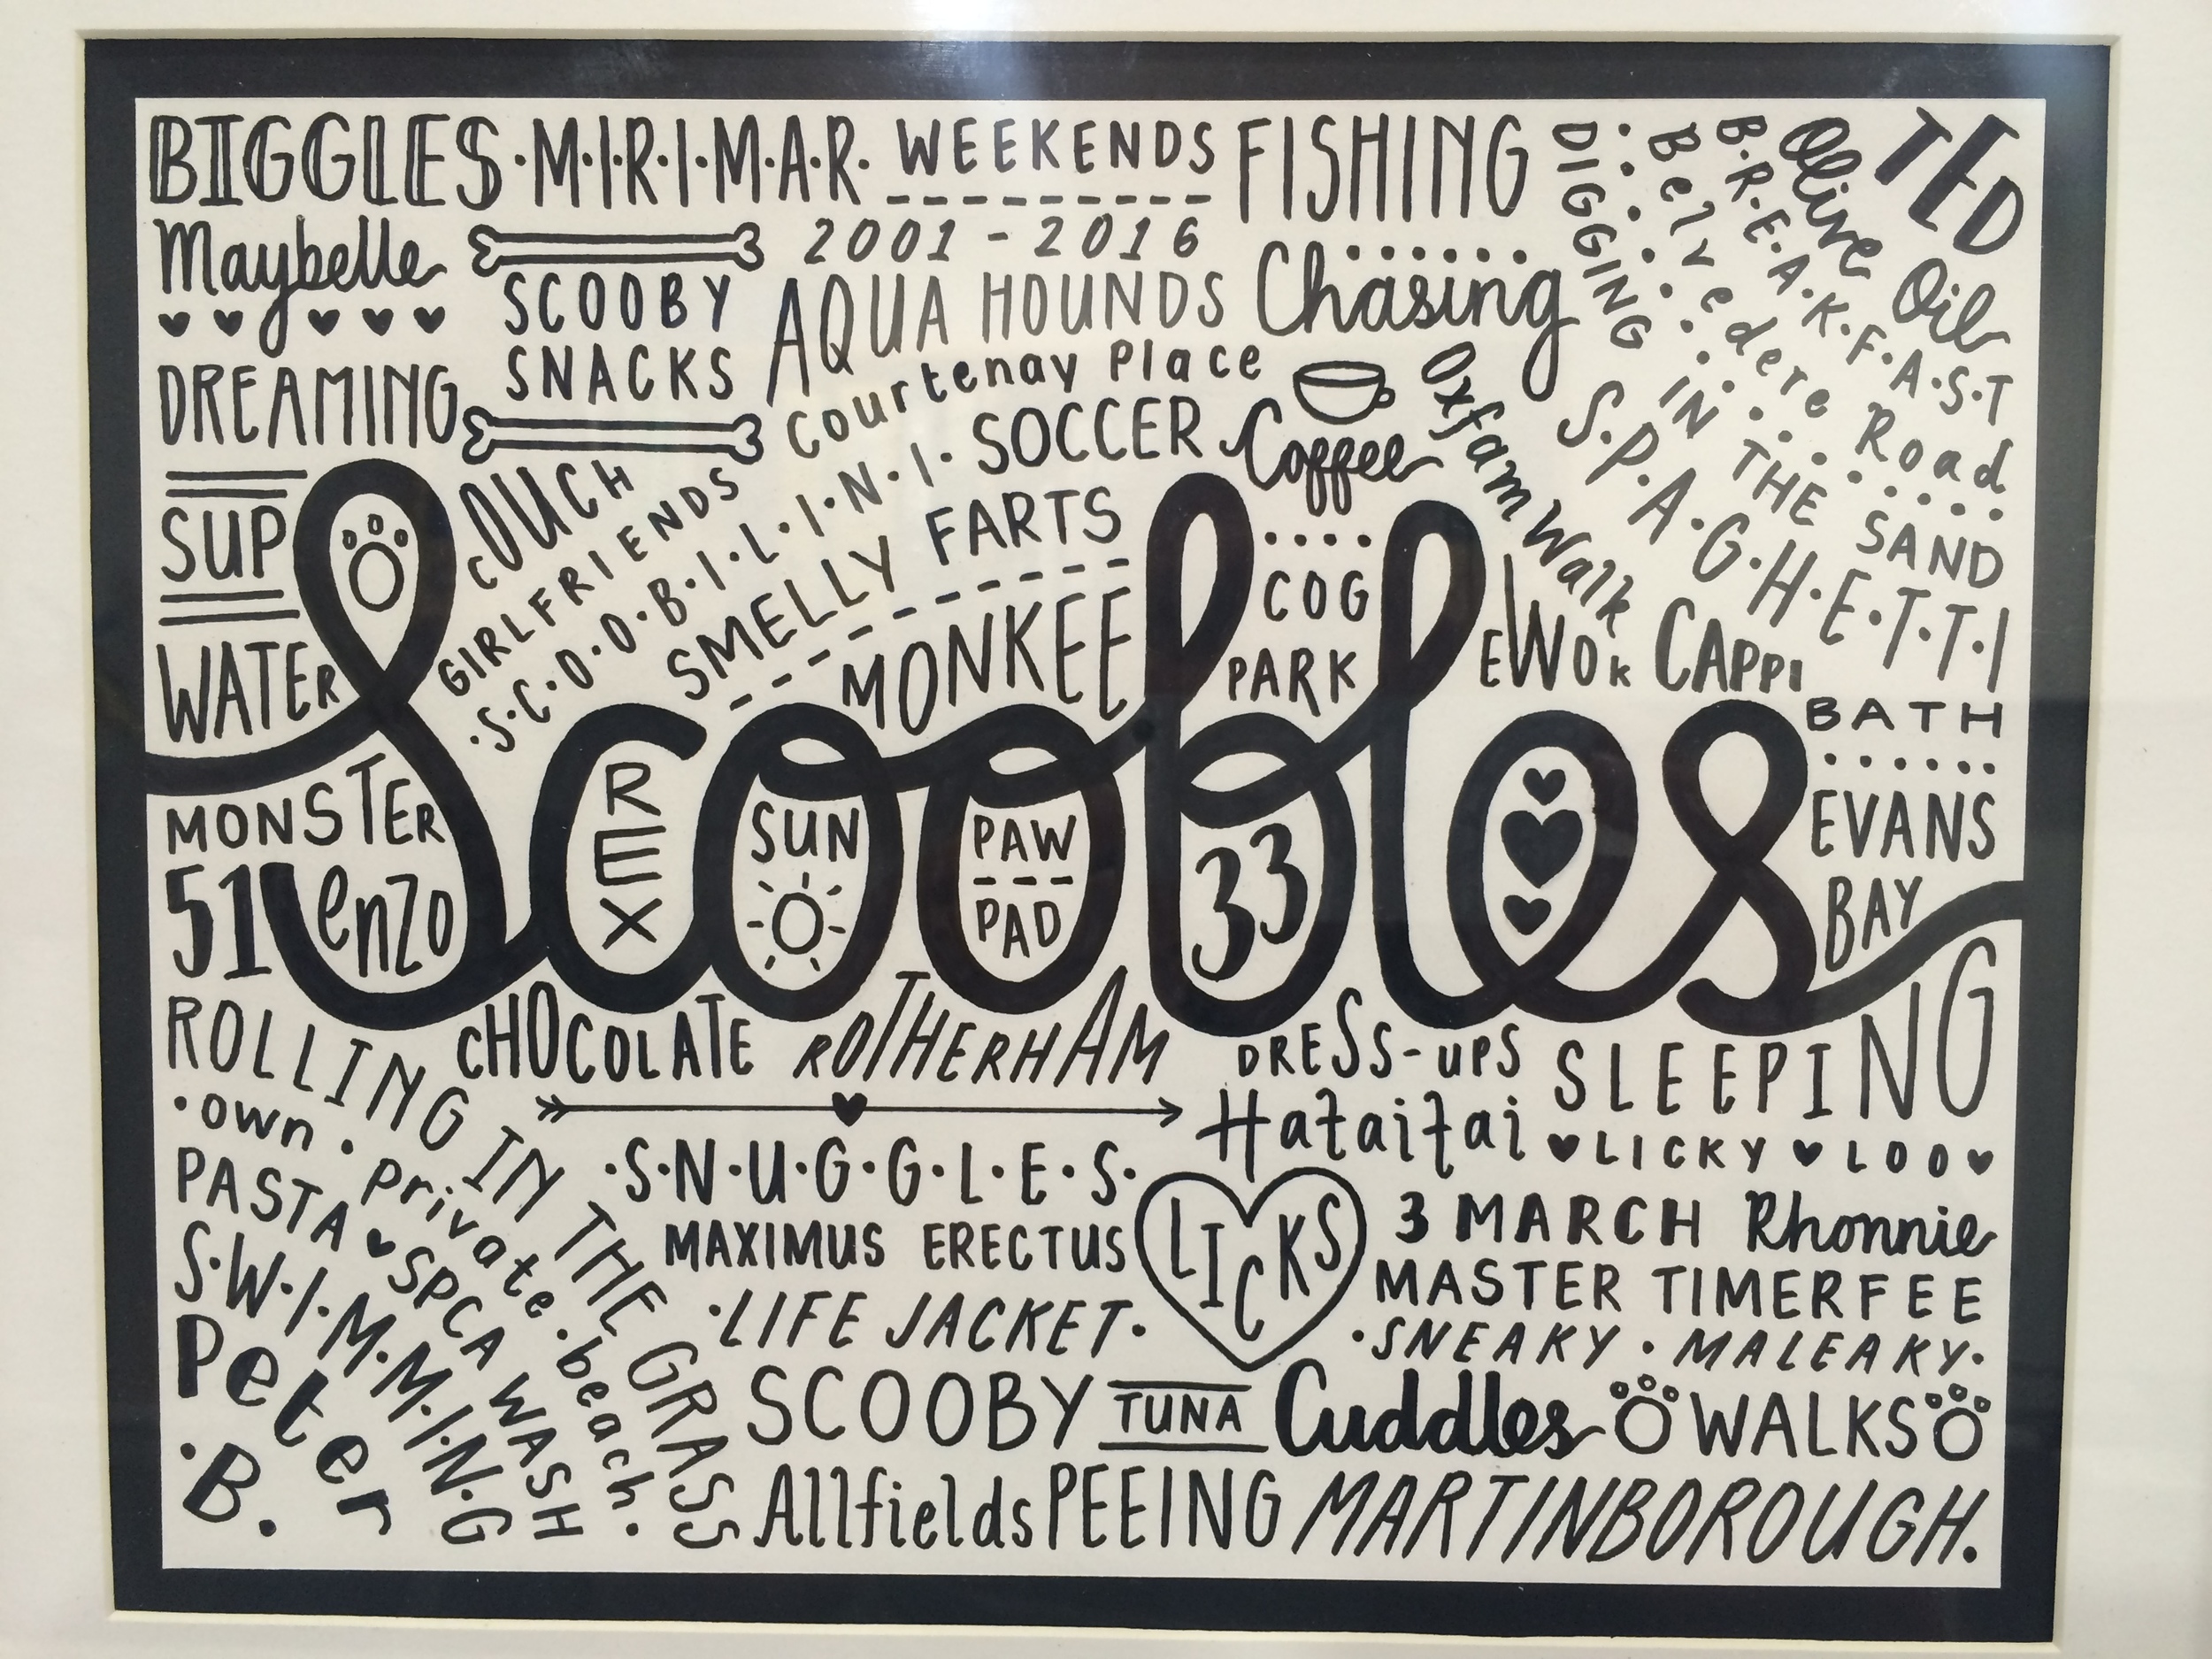 BIGGLES·M·I·R·I·M·A·R· WEEKENDS FISHING
2001 - 2016
Maybelle
SCOOBY
SNACKS
AQUA HOUNDS
Chasing
DREAMING
Courtenay Place
Coffee
SOCCER
COUCH
GIRLFRIENDS
·S·C·O·O·B·I·L·I·N·I·
SMELLY FARTS
MONKEE
DIGGING IN THE SAND
Belvedere Road
B·R·E·A·K·F·A·S·T
Olive Oil
TED
Oxfam Walk
S·P·A·G·H·E·T·T·I
SUP
WATER
COG
PARK
EWOK
CAPPI
BATH
EVANS
BAY
Scoobles
REX
SUN
PAW
PAD
33
MONSTER
51
enzo
ROLLING IN THE GRASS
CHOCOLATE
ROTHERHAM
DRESS-UPS
SLEEPING
Hataitai
LICKY LOO
·own·private·beach·
PASTA
SPCA WASH
S·W·I·M·M·I·N·G
Peter
·B.
·S·N·U·G·G·L·E·S·
MAXIMUS ERECTUS
LICKS
3 MARCH
Rhonnie
MASTER TIMERFEE
·LIFE JACKET·
·SNEAKY·MALEAKY·
SCOOBY
TUNA
Cuddles
WALKS
Allfields
PEEING
MARTINBOROUGH.